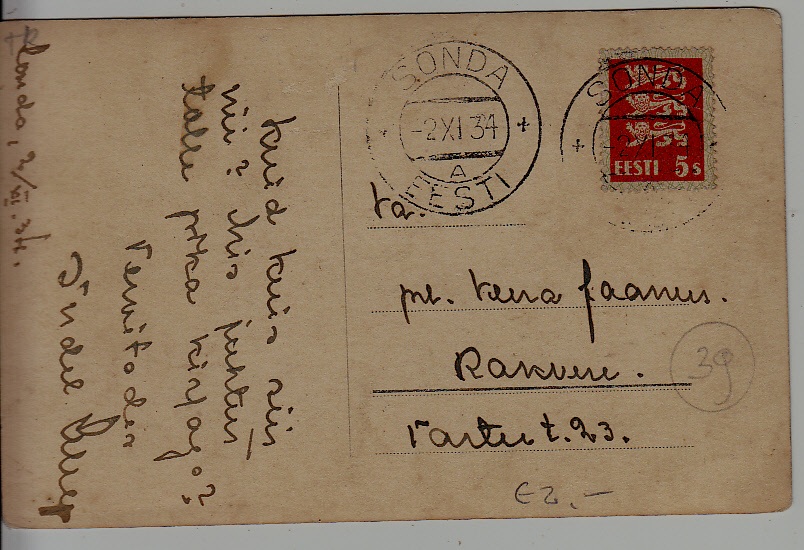 Sonda, 2/XI.34.
kuid kuis siis
nii? Mis juhtus
talle pika kirjaga?
Tervitades
SONDA
-2 XI 34
A
EESTI
SONDA
-2 XI
EESTI 5s
Ta.
prl. Leena Jaanus.
Rakvere.
Tartu t. 23.
39
€2,-